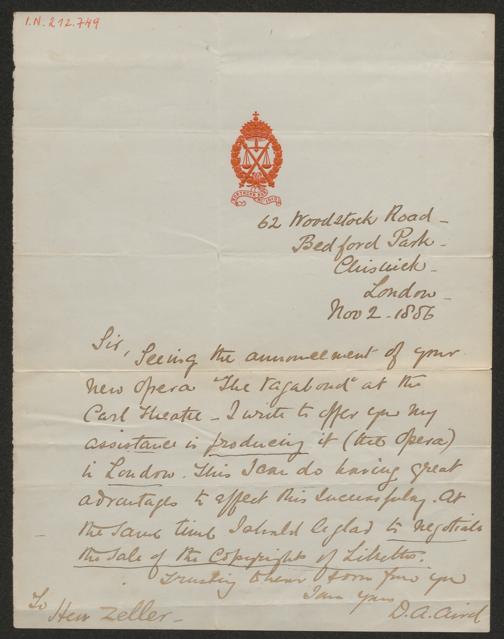 I.N. 212.749
62 Woodstock Road -
Bedford Park -
Chiswick -
London -
Nov 2 - 1886
Sir,
Seeing the announcement of your
new opera "The Vagabond" at the
Carl Theatre - I write to offer you my
assistance in producing it (the opera)
in London. This I can do having great
advantages to effect this successfully. At
the same time I should be glad to negotiate
the sale of the Copyright of Libretto.
Trusting to hear soon from you
I am yours
D. A. Aird
To
Herr Zeller -